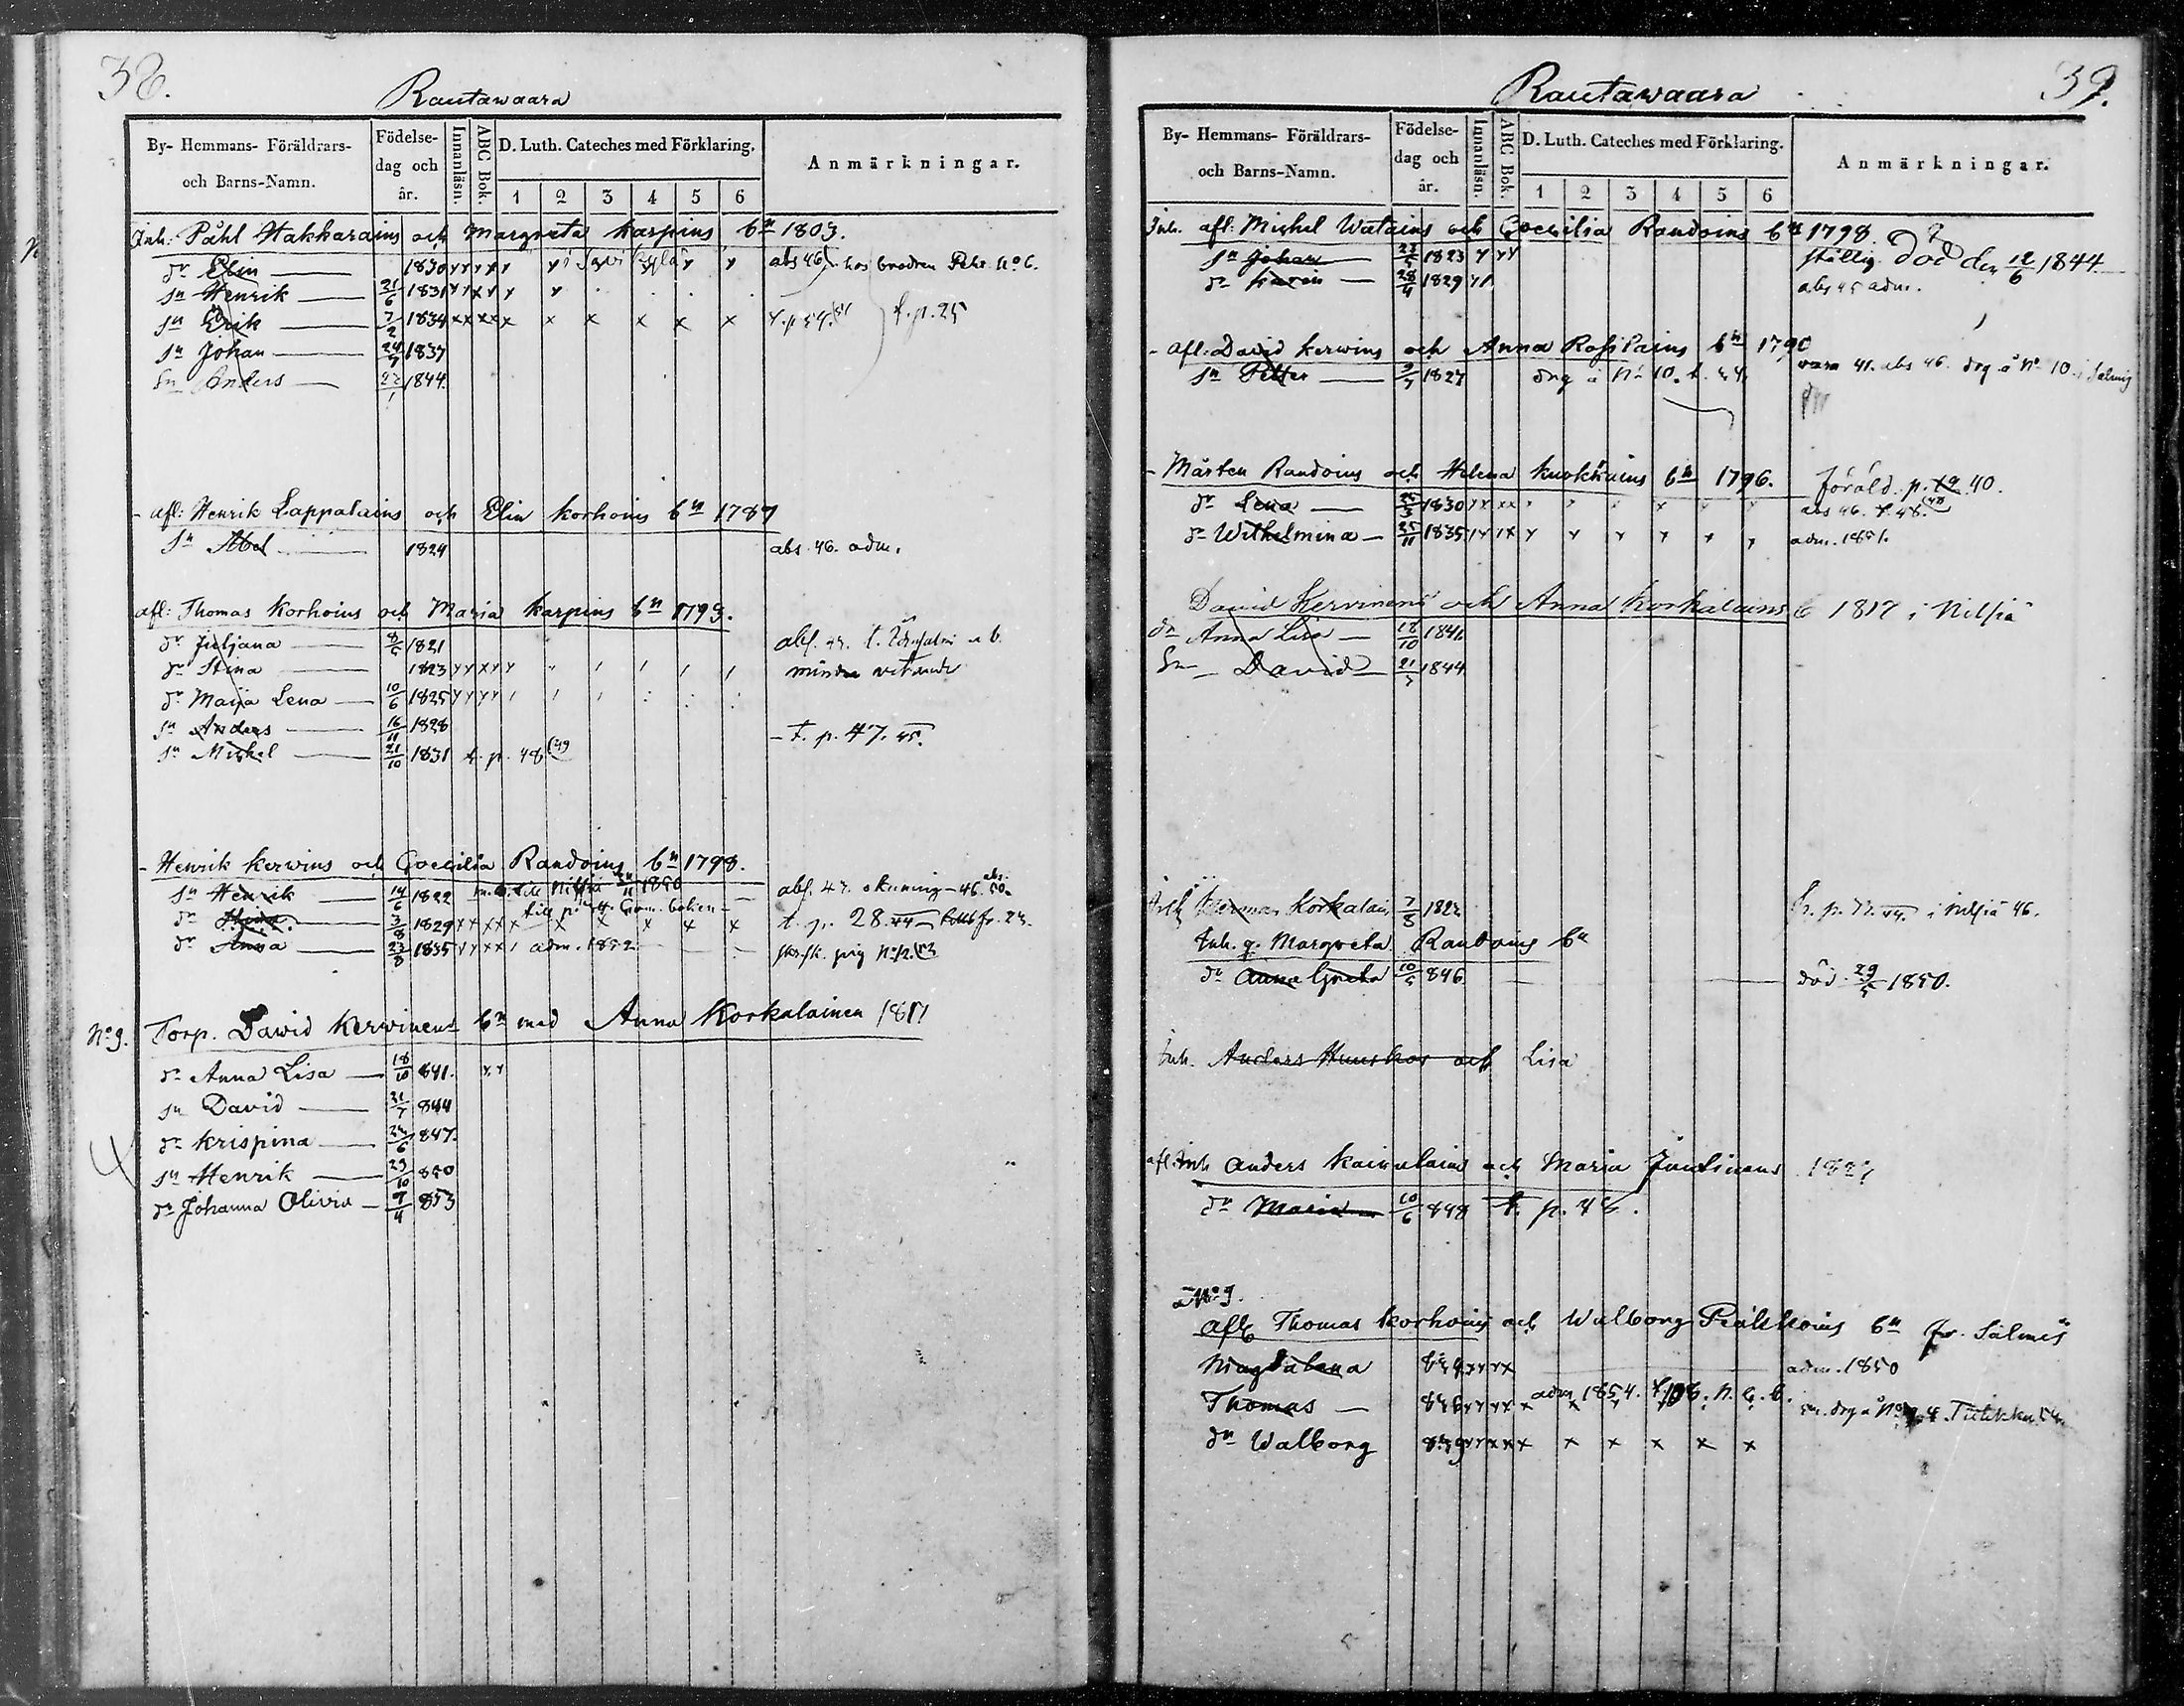 38.
Rautawaara
By- Hemmans- Föräldrars- och Barns-Namn.
Födelse-dag och år.
Innanläsn.
ABC Bok.
D. Luth. Cateches med Förklaring.
1 2 3 4 5 6
Anmärkningar.
Inh: Påhl Hakkarains och Margreta Karpins bn 1803.
dr Elin 1830 abs 46 hos brodren Pehr No 6.
sn Henrik 21/6 1831
sn Erik 7/2 1834 x x x x x x t. p. 25
sn Johan 24/7 1837
sn Anders 1844
- afl: Henrik Lappalains och Elin Korhoins bn 1787
sn Abel 1824 abs. 46. adm.
afl: Thomas Korhoins och Maria Karpins bn 1793.
dr Juljana 1821
dr Stina 1823 mindre vetande
dr Maija Lena 10/6 1825
sn Anders 16/11 1828 - t. p. 47. 45.
sn Mickel 21/10 1831 t. p. 48 (49
- Henrik Kerwins och Coecilia Randoins bn 1798.
sn Henrik 14/6 1822 till Nilsiä 1850
dr 3/8 1829 t. p. 28. 44
dr Anna 23/8 1835 adm. 1852
No 9. Torp. Dawid Kerwinens bn med Anna Korkalainen 1817
dr Anna Lisa 18/10 841.
sn David 21/7 844
dr Krispina 847.
sn Henrik 29/10 850
dr Johanna Olivia 9/4 853
39.
Rautawaara
By- Hemmans- Föräldrars- och Barns-Namn.
Födelse-dag och år.
Innanläsn.
ABC Bok.
D. Luth. Cateches med Förklaring.
1 2 3 4 5 6
Anmärkningar.
Inh. afl. Michel Watains och Coecilia Randoins bn 1798.
sn Johan 1823 död den 12/6 1844
dr Karin 28/4 1829 abs 45 adm.
- afl: David Kerwins och Anna Rossilains bn 1790
sn Petter 1827 drg å No 10. abs 46. drg å No 10
- Mårten Randoins och Helena Knokkains bn 1796. föräld. p. 40.
dr Lena 1830 abs 46. t. 48.
dr Wilhelmina 25/11 1835 adm. 1851.
David Kervinens och Anna Korkalains b 1817 i Nilsiä
dr Anna Lisa 18/10 1841
sn David 21/7 1844
Inh Herman Korkalain 7/8 1822 i Nilsiä 46.
Inh. q. Margreta Randoins bn
dr Anna Greta 10/5 846 död 29/5 1850.
Inh. Anders Huuskos och Lisa
afl. Inh Anders Kainulains och Maria Juntinens
dr Maria 10/6 848 t. p. 45.
No 9.
afl Thomas Korhoins och Walborg bn fr. Salmis
Magdalena adm. 1850
Thomas adm 1854.
dr Walborg 839 x x x x x x